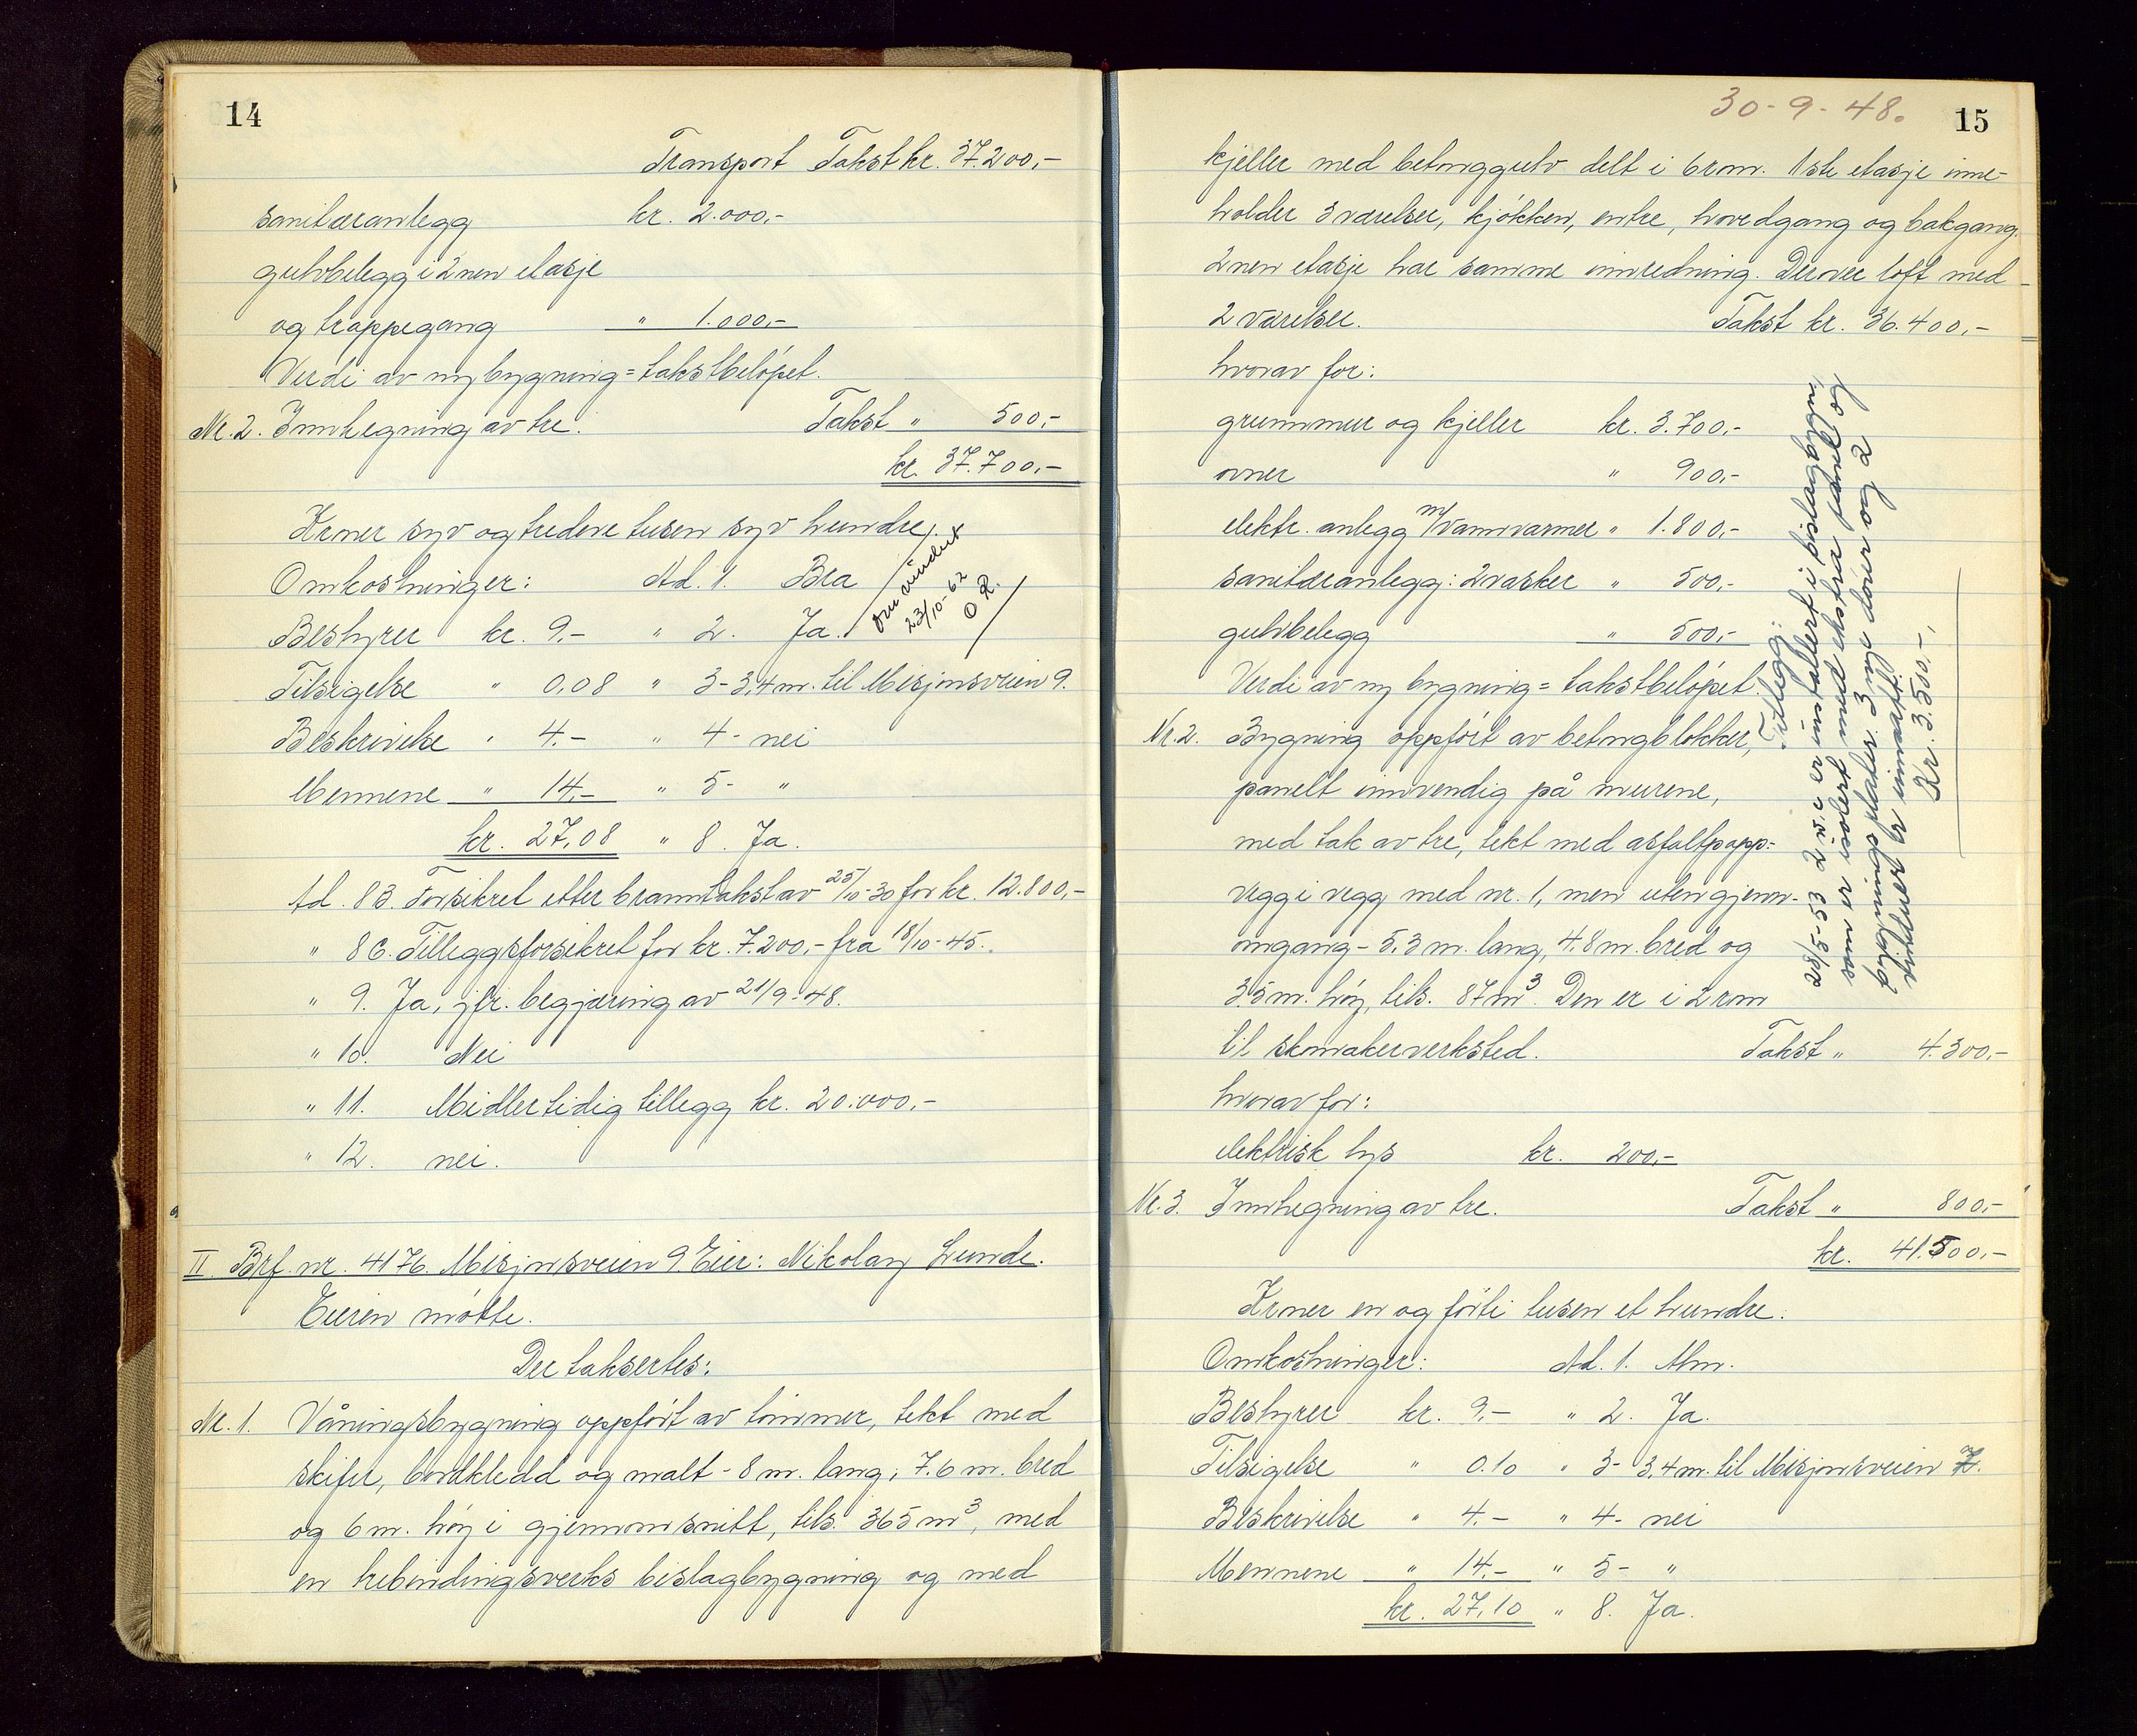 14
Transport Takst kr. 37.200,-
sanitæranlegg kr. 2.000,-
gulvbelegg i 2nen etasje
og trappegang " 1.000,-
Verdi av ny bygning = takstbeløpet.
Nr. 2. Innhegning av tre. Takst " 500,-
kr. 37.700,-
Kroner syv og tredve tusen syv hundre.
Omkostninger: Ad. 1. Bra
Bestyrer kr. 9,- " 2. Ja.
Tilsigelse " 0,08 " 3- 3,4 m. til Misjonsveien 9.
Beskrivelse " 4.- " 4- nei
Mennene " 14,- " 5- "
kr. 27,08 " 8. Ja.
23/10-62
O R.
Ad. 8B. Forsikret etter branntakst av 25/10-30 for kr. 12.800,-
" 8C. Tilleggsforsikret for kr. 7.200,- fra 18/10-45.
" 9. Ja, jfr. begjæring av 21/9-48.
" 10. Nei
" 11. Midlertidig tillegg kr. 20.000,-
" 12. nei.
II Brf. nr. 4176. Misjonsveien 9. Eier: Nikolay Lunde.
Eieren møtte.
Der taksertes:
Nr. 1. Våningsbygning oppført av tømmer, tekt med
skifer, bordkledd og malt - 8 m. lang, 7.6 m. bred
og 6 m. høy i gjennomsnitt, tils. 365 m3, med
en trebindingsverks bislagbygning og med
30-9-48.
15
kjeller med betonggulv delt i 6 rom. 1ste etasje inne-
holder 3 værelser, kjøkken, entre, hovedgang og bakgang.
2nen etasje har samme innredning. Derover loft med
2 værelser. Takst kr. 36.400,-
hvorav for:
grunnmur og kjeller kr. 3.700,-
ovner " 900,-
elektr. anlegg m/vannvarmer " 1.800,-
sanitæranlegg: 2 vasker " 500,-
gulvbelegg " 500,-
Verdi av ny bygning = takstbeløpet.
Nr. 2. Bygning oppført av betongblokker,
panelt innvendig på murene,
med tak av tre, tekt med asfaltpapp-
vegg i vegg med nr. 1, men uten gjenn-
omgang - 5,3 m. lang, 4.8 m. bred og
3.5 m. høy, tils. 87 m3. Den er i 2 rom
til skomakerverksted. Takst " 4.300,-
hvorav for:
elektrisk lys kr. 200,-
Nr. 3. Innhegning av tre. Takst " 800,-
kr. 41.500,-
Kroner en og førti tusen et hundre.
Omkostninger: Ad. 1. Alm.
Bestyrer kr. 9,- " 2. Ja.
Tilsigelse " 0.10 " 3- 3,4 m. til Misjonsveien 7.
Beskrivelse " 4.- " 4- nei
Mennene " 14,- " 5- "
kr. 27,10 " 8. Ja.
Tillegg:
28/5-53 2 w.c. er installert i bislagbygn,
som er isolert med ekstra panel og
bygningsplater. 3 nye dører og 2
vinduer er innsatt.
Kr. 3.500,-.